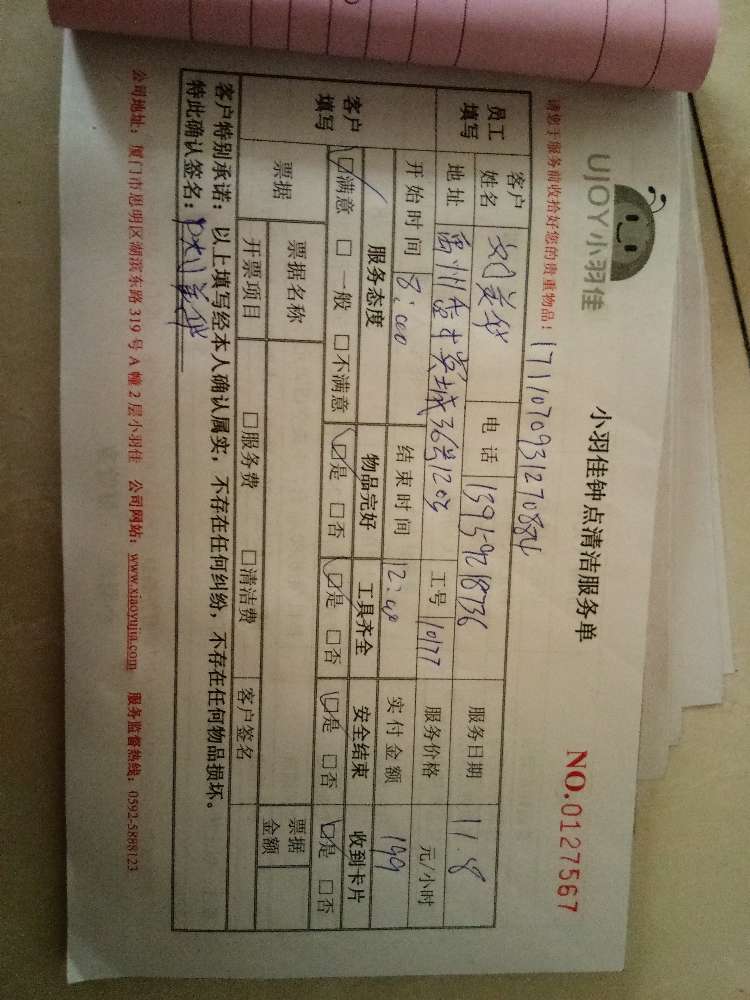 UJOY小羽佳
小羽佳钟点清洁服务单
NO.0127567
请您于服务前收拾好您的贵重物品!
员工填写 客户姓名 电话 服务日期 11.8
地址 工号 10177 服务价格 元/小时
开始时间 8:00 结束时间 12:00 实付金额 199
客户填写 服务态度 物品完好 工具齐全 安全结束 收到卡片
☑满意 □一般 □不满意 ☑是 □否 ☑是 □否 ☑是 □否 ☑是 □否
票据 票据名称 票据金额
开票项目 □服务费 □清洁费 客户签名
客户特别承诺:以上填写经本人确认属实,不存在任何纠纷,不存在任何物品损坏。
特此确认签名:
公司地址:厦门市思明区湖滨东路 319 号 A 幢 2 层小羽佳 公司网站:www.xiaoyujia.com 服务监督热线:0592-5888123